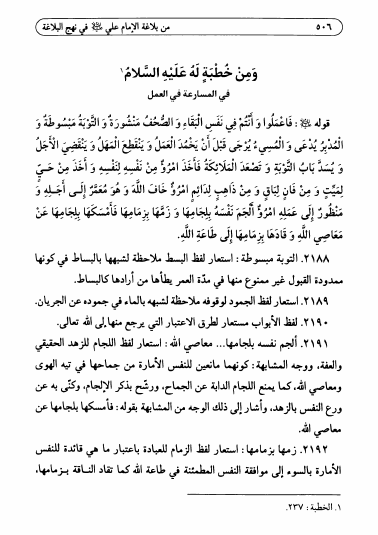 ٥٠٦
من بلاغة الإمام علي ﷺ في نهج البلاغة
وَمِنْ خُطْبَةٍ لَهُ عَلَيْهِ السَّلامُ¹
في المسارعة في العمل
قوله ﷺ: فَاعْمَلُوا وَ أَنْتُمْ فِي نَفَسِ الْبَقَاءِ وَ الصُّحُفُ مَنْشُورَةٌ وَ التَّوْبَةُ مَبْسُوطَةٌ وَ
الْمُدْبِرُ يُدْعَى وَ الْمُسِيءُ يُرْجَى قَبْلَ أَنْ يَخْمُدَ الْعَمَلُ وَ يَنْقَطِعَ الْمَهَلُ وَ يَنْقَضِيَ الْأَجَلُ
وَ يُسَدَّ بَابُ التَّوْبَةِ وَ تَصْعَدَ الْمَلَائِكَةُ فَأَخَذَ امْرُؤٌ مِنْ نَفْسِهِ لِنَفْسِهِ وَ أَخَذَ مِنْ حَيٍّ
لِمَيِّتٍ وَ مِنْ فَانٍ لِبَاقٍ وَ مِنْ ذَاهِبٍ لِدَائِمٍ امْرُؤٌ خَافَ اللَّهَ وَ هُوَ مُعَمَّرٌ إِلَى أَجَلِهِ وَ
مَنْظُورٌ إِلَى عَمَلِهِ امْرُؤٌ أَلْجَمَ نَفْسَهُ بِلِجَامِهَا وَ زَمَّهَا بِزِمَامِهَا فَأَمْسَكَهَا بِلِجَامِهَا عَنْ
مَعَاصِي اللَّهِ وَ قَادَهَا بِزِمَامِهَا إِلَى طَاعَةِ اللَّهِ.
٢١٨٨. التوبة مبسوطة: استعار لفظ البسط ملاحظة لشبهها بالبساط في كونها
ممدودة القبول غير ممنوع منها في مدّة العمر يطأها من أرادها كالبساط.
٢١٨٩. استعار لفظ الجمود لوقوفه ملاحظة لشبهه بالماء في جموده عن الجريان.
٢١٩٠. لفظ الأبواب مستعار لطرق الاعتبار التي يرجع منها إلى الله تعالى.
٢١٩١. ألجم نفسه بلجامها... معاصي الله: استعار لفظ اللجام للزهد الحقيقي
والعفة، ووجه المشابهة: كونهما مانعين للنفس الأمارة من جماحها في تيه الهوى
ومعاصي الله، كما يمنع اللجام الدابة عن الجماح، ورشّح بذكر الإلجام، وكنّى به عن
ورع النفس بالزهد، وأشار إلى ذلك الوجه من المشابهة بقوله: فأمسكها بلجامها عن
معاصي الله.
٢١٩٢. زمها بزمامها: استعار لفظ الزمام للعبادة باعتبار ما هي قائدة للنفس
الأمارة بالسوء إلى موافقة النفس المطمئنة في طاعة الله كما تقاد الناقة بـزمامها،
١. الخطبة: ٢٣٧.